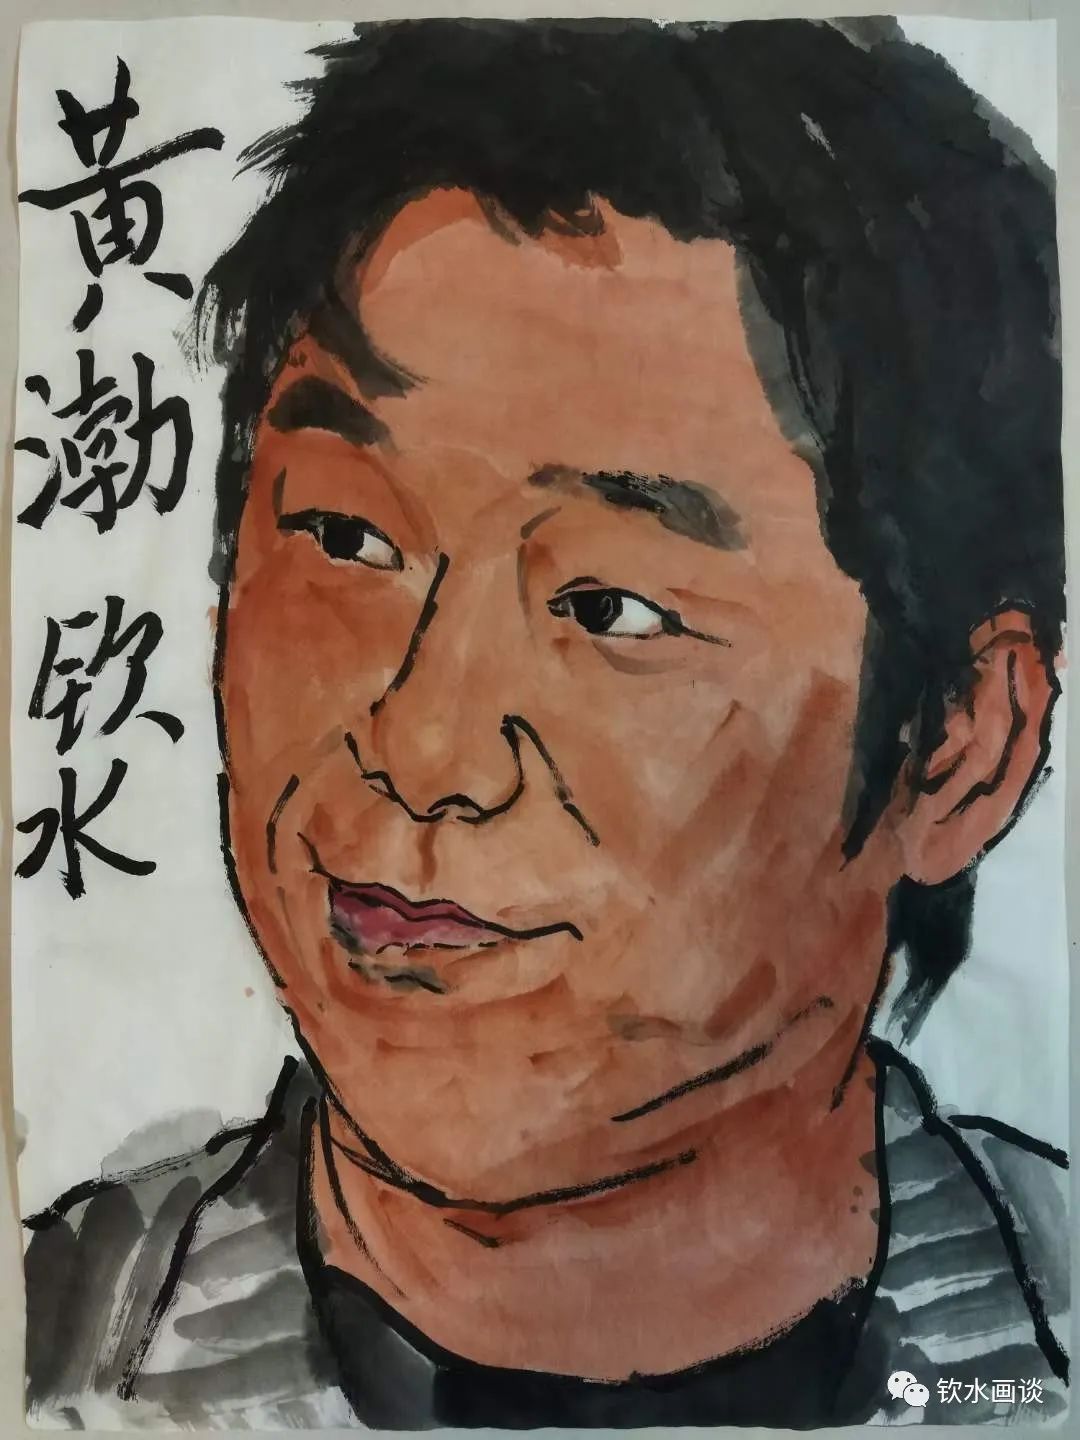 黃渤 钦水
钦水画谈